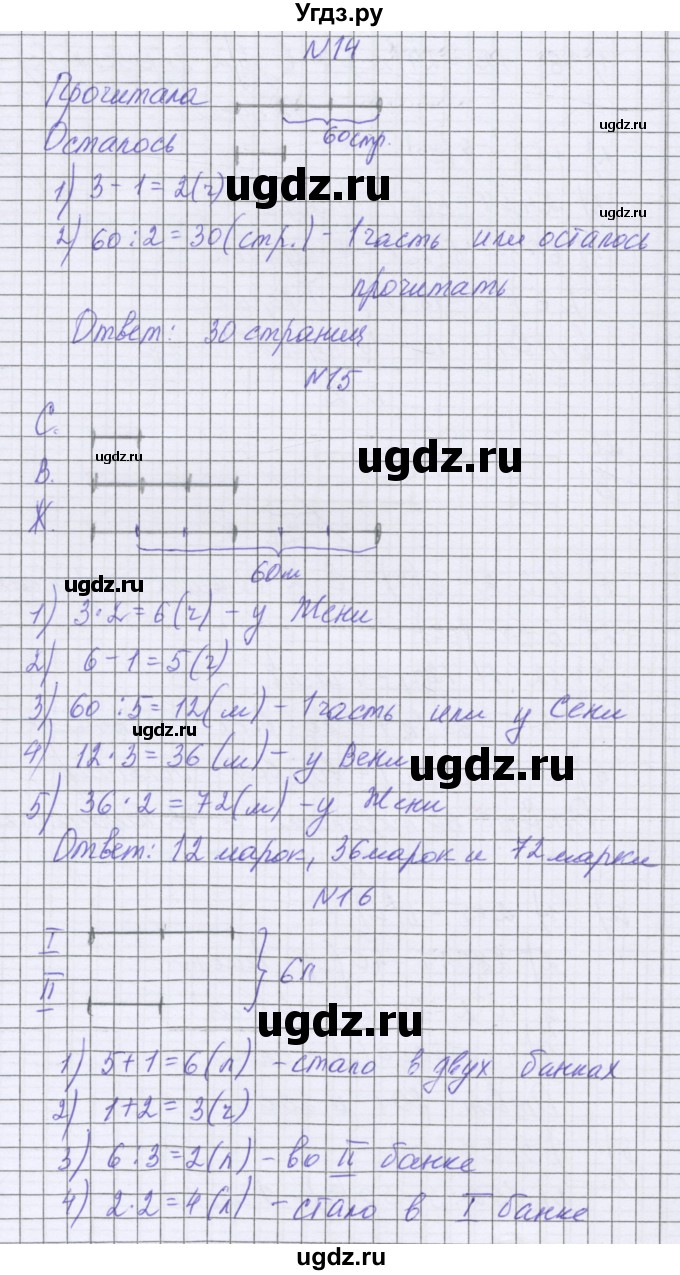 Угдз.ру
N14
Прочитала
ugdz.ru
Осталось
60стр.
1) 3 - 1 = 2(ч)
ugdz.ru
ugdz.ru
2) 60 : 2 = 30(стр.) - 1 часть или осталось
прочитать
Ответ: 30 страниц
N15
С.
ugdz.ru
ugdz.ru
В.
Ж.
60м
ugdz.ru
1) 3·2 = 6(ч) - у Жени
2) 6 - 1 = 5(ч)
3) 60 : 5 = 12(м) - 1 часть или у Сени
ugdz.ru
4) 12·3 = 36(м) - у Вени
ugdz.ru
5) 36·2 = 72(м) - у Жени
Ответ: 12 марок, 36 марок и 72 марки
N16
I
6л
II
ugdz.ru
1) 5+1 = 6(л) - стало в двух банках
2) 1+2 = 3(ч)
3) 6:3 = 2(л) - во II банке
4) 2·2 = 4(л) - стало в I банке
ugdz.ru